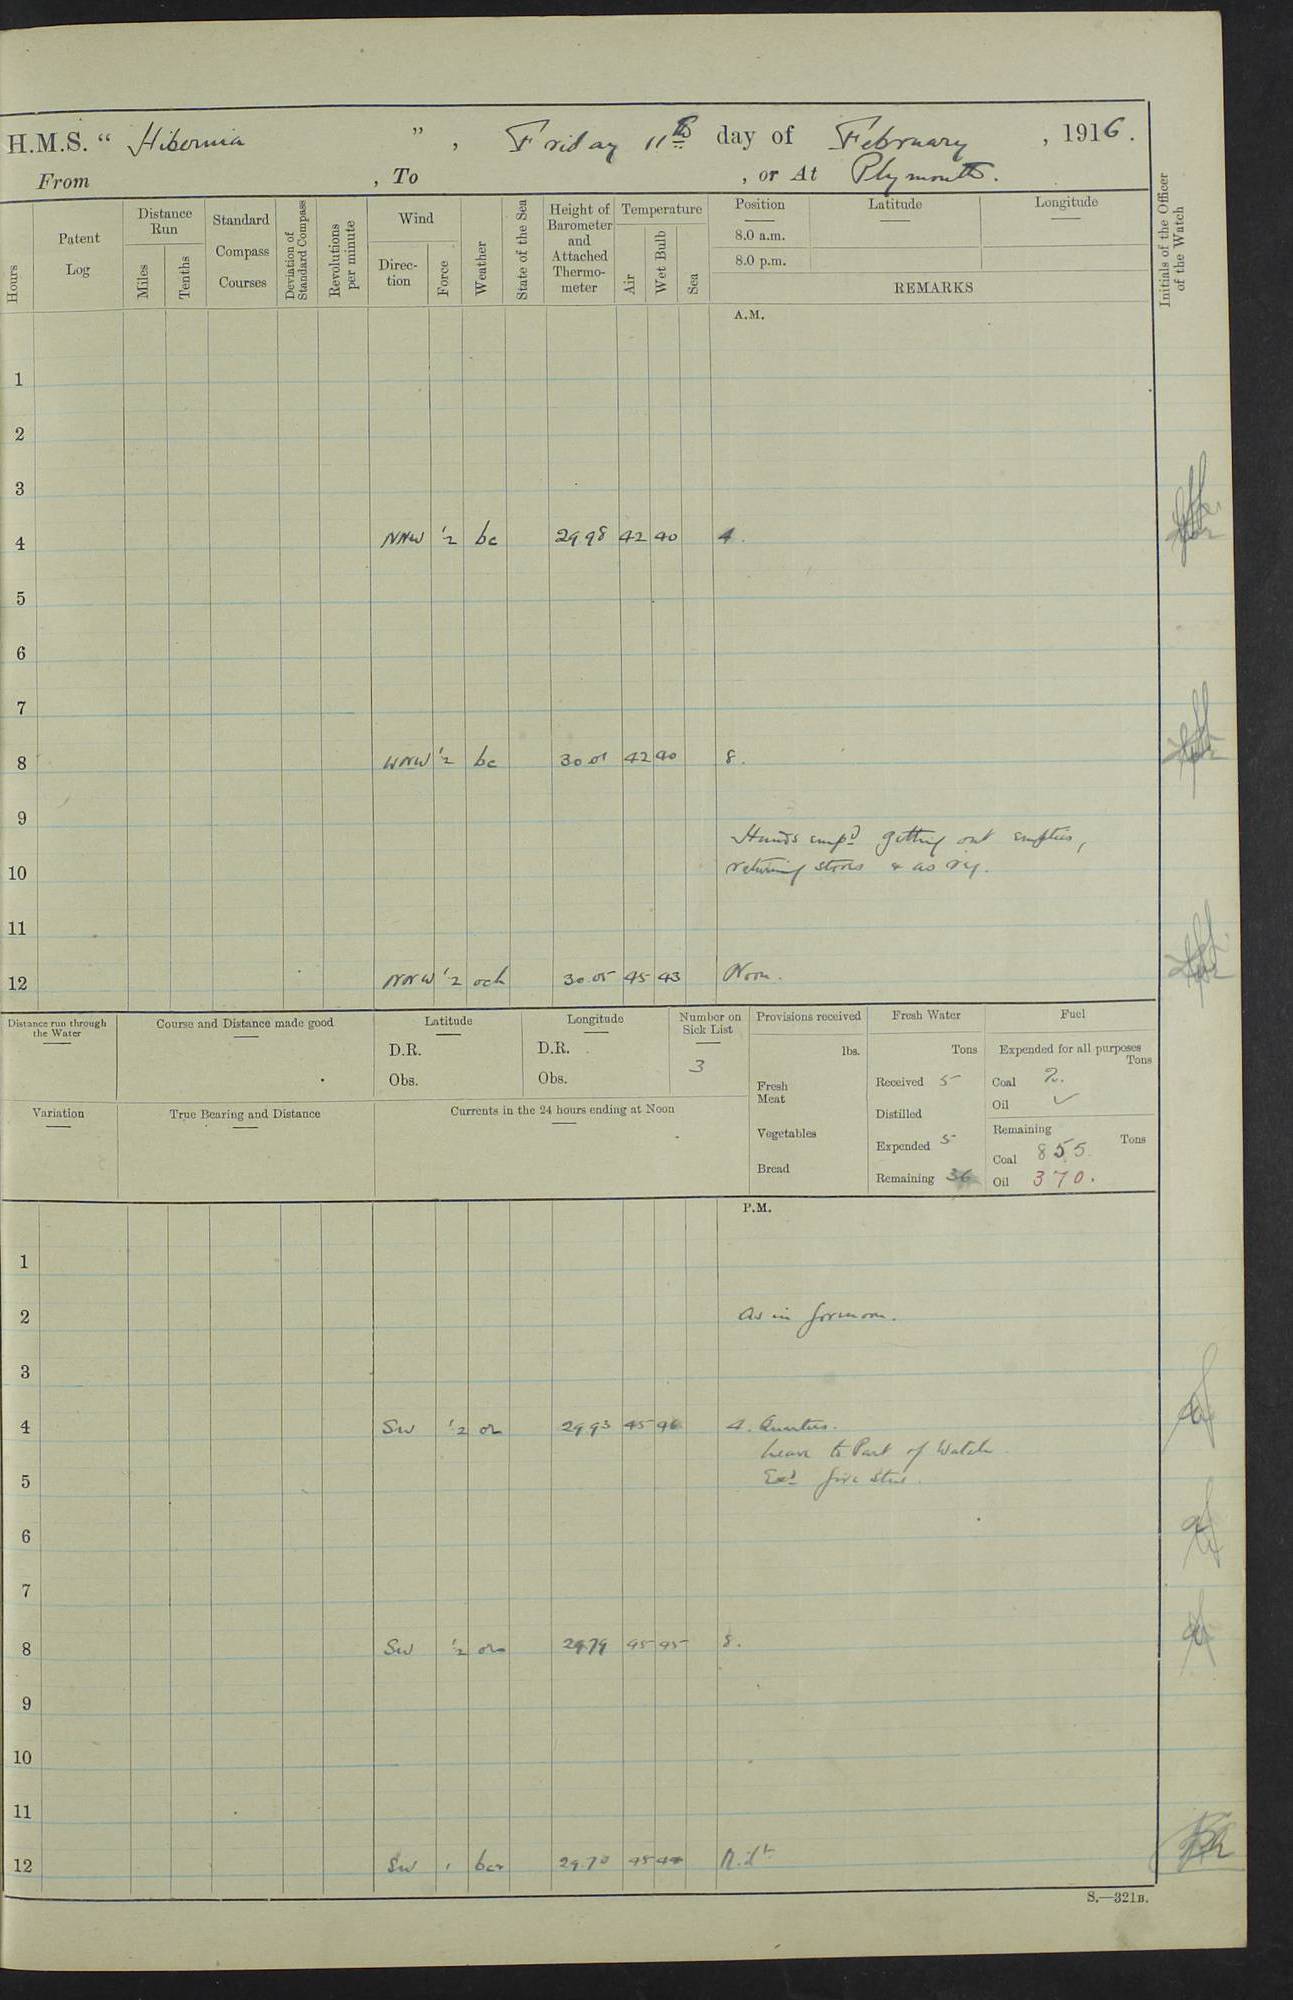 H.M.S. " Hibernia ", Friday 11th day of February, 1916.
From , To , or At Plymouth.
Hours
Patent Log
Distance Run
Miles
Tenths
Standard Compass Courses
Deviation of Standard Compass
Revolutions per minute
Wind
Direction
Force
Weather
State of the Sea
Height of Barometer and Attached Thermometer
Temperature
Air
Wet Bulb
Sea
Position
8.0 a.m.
8.0 p.m.
Latitude
Longitude
REMARKS
Initials of the Officer of the Watch
A.M.
1
2
3
4 NNW 1/2 bc 29 98 42 40 4.
5
6
7
8 WNW 1/2 bc 30 01 42 40 8.
9
Hands emp'd getting out empties,
10 returning stores & as req.
11
12 NNW 1/2 och 30 05 45 43 Noon.
Distance run through the Water
Course and Distance made good
Latitude
D.R.
Obs.
Longitude
D.R.
Obs.
Number on Sick List
3
Provisions received
lbs.
Fresh Meat
Vegetables
Bread
Fresh Water
Tons
Received 5
Distilled
Expended 5
Remaining 36
Fuel
Expended for all purposes
Tons
Coal 2.
Oil ✓
Remaining
Tons
Coal 855
Oil 370.
Variation
True Bearing and Distance
Currents in the 24 hours ending at Noon
P.M.
1
2 As in forenoon.
3
4 SW 1/2 or 29 93 45 4. Quarters.
Leave to Part of Watch
5 Ex'd fire Stns.
6
7
8 SW 1/2 29.79 45 45 8.
9
10
11
12 SW 1 29.70 45 44 M.dt
S.—321B.